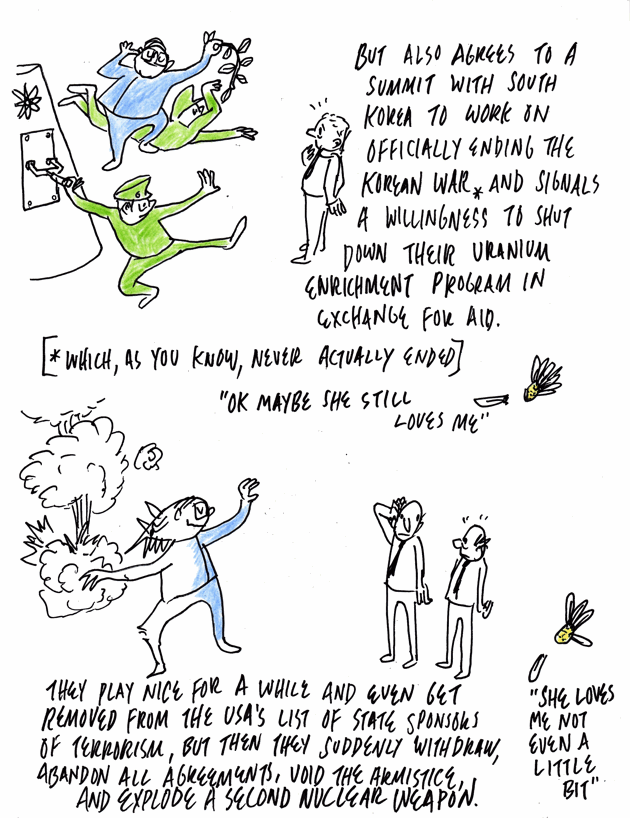 BUT ALSO AGREES TO A
SUMMIT WITH SOUTH
KOREA TO WORK ON
OFFICIALLY ENDING THE
KOREAN WAR* AND SIGNALS
A WILLINGNESS TO SHUT
DOWN THEIR URANIUM
ENRICHMENT PROGRAM IN
EXCHANGE FOR AID.
[*WHICH, AS YOU KNOW, NEVER ACTUALLY ENDED]
"OK MAYBE SHE STILL
LOVES ME"
THEY PLAY NICE FOR A WHILE AND EVEN GET
REMOVED FROM THE USA'S LIST OF STATE SPONSORS
OF TERRORISM, BUT THEN THEY SUDDENLY WITHDRAW,
ABANDON ALL AGREEMENTS, VOID THE ARMISTICE,
AND EXPLODE A SECOND NUCLEAR WEAPON.
"SHE LOVES
ME NOT
EVEN A
LITTLE
BIT"